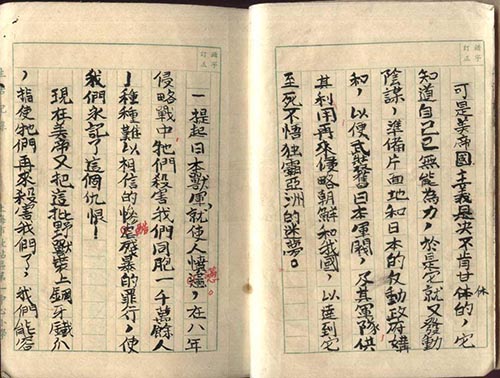 錯字訂正
可是美帝國主義是决不肯甘体的,它
休
知道自己已無能為力,於是它就又發動
陰謀,準備片面地和日本的反動政府媾
和,以便武裝舊日本軍閥,及其軍隊供
其利用再來侵略朝鮮和我國,以達到它
至死不悟独霸亞洲的迷夢。
錯字訂正
一提起日本獸軍,就使人憤,在八年
侵略戰中牠們殺害我們同胞一千萬餘人
,種種難以相信的惨殘暴的罪行,使
酷
我們永記了這個仇恨!
現在美帝又把這批野獸裝上鋼牙鐵爪
,指使牠們再來殺害我們了,我們能容